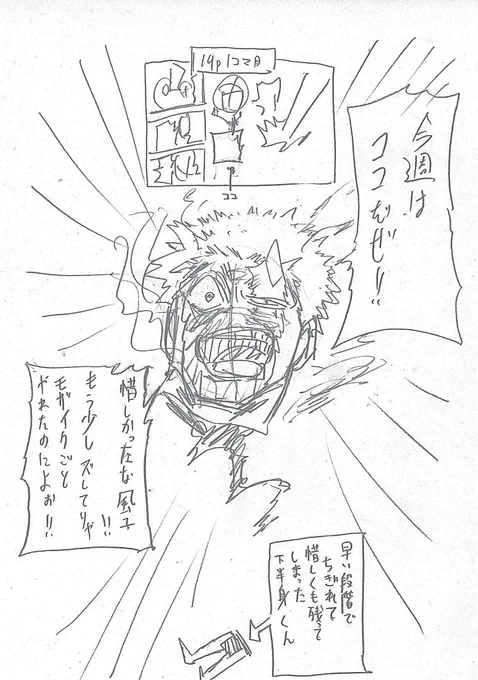 19p 1コマ目
ココ
今週は
ココだぜ!!
惜しかったな風子!!
もう少しズレてりゃ
モガイクごと
がれたのによぉ!!
早い段階で
ちぎれて
惜しくも残って
しまった
下半身くん